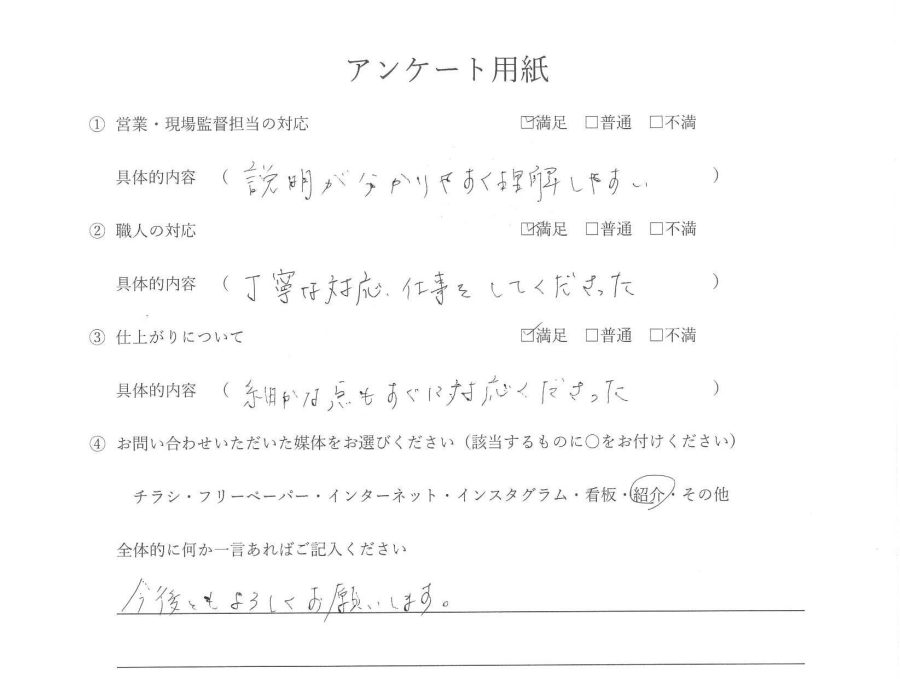 アンケート用紙
① 営業・現場監督担当の対応 ☑満足 □普通 □不満
具体的内容 ( 説明が分かりやすく理解しやすい )
② 職人の対応 ☑満足 □普通 □不満
具体的内容 ( 丁寧な対応、仕事をしてくださった )
③ 仕上がりについて ☑満足 □普通 □不満
具体的内容 ( 細かな点もすぐに対応くださった )
④ お問い合わせいただいた媒体をお選びください(該当するものに〇をお付けください)
チラシ・フリーペーパー・インターネット・インスタグラム・看板・紹介・その他
全体的に何か一言あればご記入ください
今後ともよろしくお願いします。